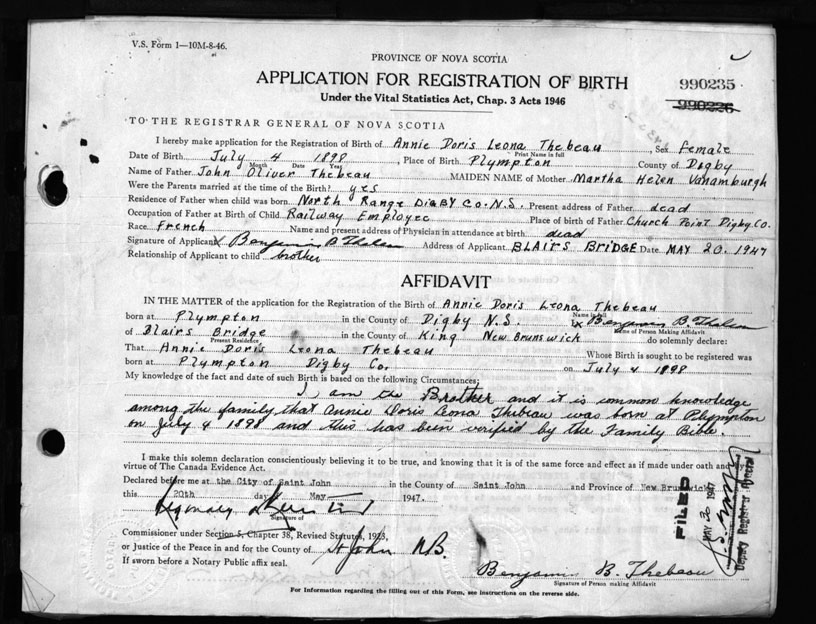 V.S. Form 1—10M-8-46.
PROVINCE OF NOVA SCOTIA
APPLICATION FOR REGISTRATION OF BIRTH
990235
Under the Vital Statistics Act, Chap. 3 Acts 1946
990236
TO THE REGISTRAR GENERAL OF NOVA SCOTIA
I hereby make application for the Registration of Birth of Annie Doris Leona Thebeau, Sex female
Print Name in full
Date of Birth July 4 1898, Place of Birth Plympton County of Digby
Month Date Year
Name of Father John Oliver Thebeau MAIDEN NAME of Mother Martha Helen Vanamburgh
Were the Parents married at the time of the Birth? yes
Residence of Father when child was born North Range Digby Co. N.S. Present address of Father dead
Occupation of Father at Birth of Child Railway Employee Place of birth of Father Church Point Digby Co.
Race French Name and present address of Physician in attendance at birth dead
Signature of Applicant X Benjamin B Thebeau Address of Applicant BLAIRS BRIDGE Date MAY 20, 1947
Relationship of Applicant to child brother
AFFIDAVIT
IN THE MATTER of the application for the Registration of the Birth of Annie Doris Leona Thebeau
Name in full
born at Plympton in the County of Digby N.S. I, X Benjamin B. Thebeau
Name of Person Making Affidavit
of Blairs Bridge in the County of King New Brunswick do solemnly declare:
Present Residence
That Annie Doris Leona Thebeau Whose Birth is sought to be registered was
born at Plympton Digby Co. on July 4 1898
My knowledge of the fact and date of such Birth is based on the following Circumstances:
I am the Brother and it is common knowledge
among the family, that Annie Doris Leona Thebeau was born at Plympton
on July 4 1898 and this has been verified by the Family Bible.
I make this solemn declaration conscientiously believing it to be true, and knowing that it is of the same force and effect as if made under oath and by
virtue of The Canada Evidence Act.
Declared before me at the City of Saint John in the County of Saint John and Province of New Brunswick
this 20th day of May 1947.
Signature of
Commissioner under Section 5, Chapter 38, Revised Statutes, 1923,
or Justice of the Peace in and for the County of St John N.B.
If sworn before a Notary Public affix seal.
Benjamin B. Thebeau
Signature of Person making Affidavit
For Information regarding the filling out of this Form, see instructions on the reverse side.
FILED
MAY 26 1947
Deputy Registrar General